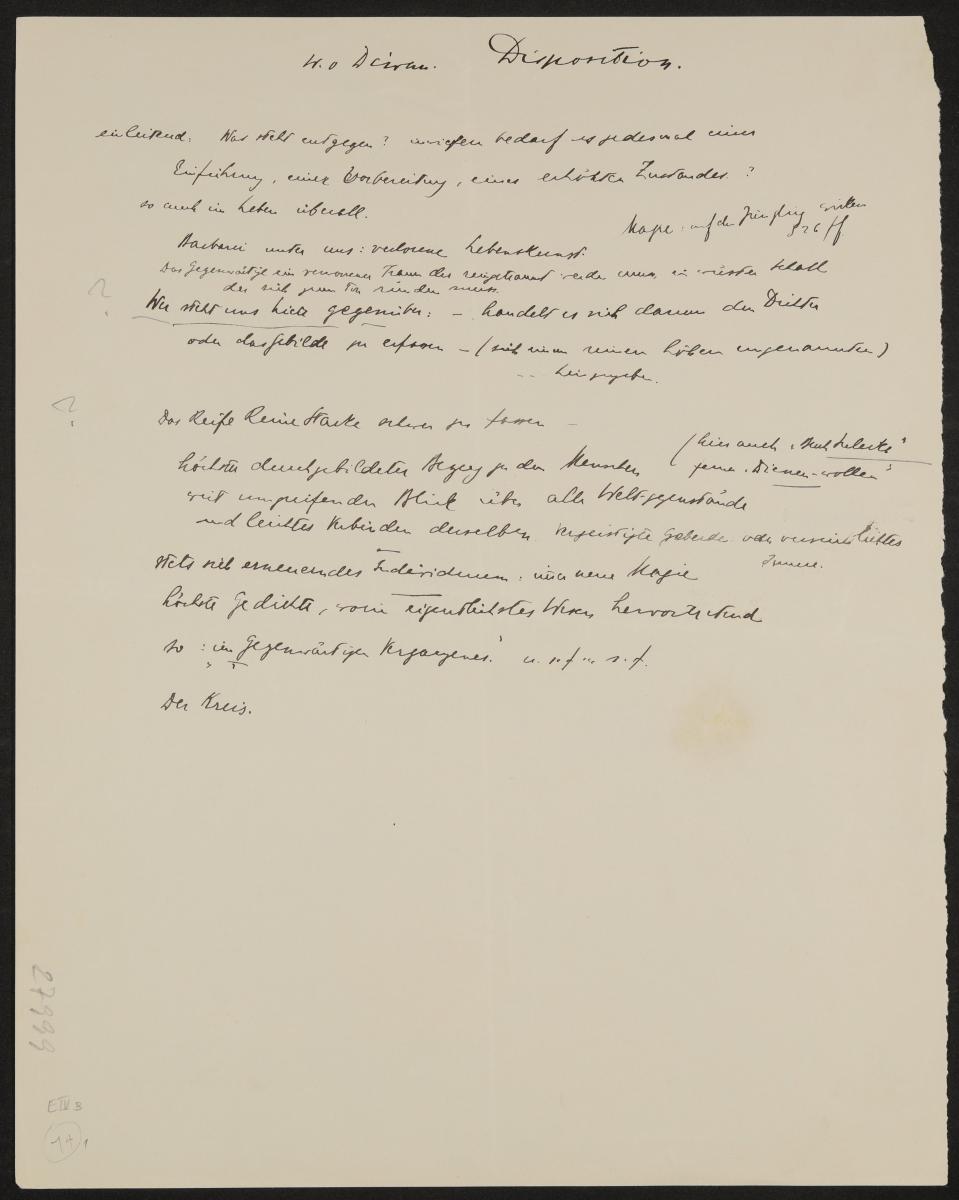 W. o Diwan. Disposition.
einleitend: Was steht entgegen? inwiefern bedarf es jedesmal einer
Einführung, einer Vorbereitung, eines erhöhten Zustandes?
so auch im Leben überall.
Magie: auf den Jüngling wirken
526 ff
Barbarei unter uns: verlorene Lebenskunst.
Das Gegenwärtige ein verworrener Traum der
ein wüster Schall
der sich zum Ton ründen muss.
?
Wer steht uns hier gegenüber: – handelt es sich darum den Dichter
oder das Gebilde zu erfassen – (sich einem reinen höhern ungenannten)
hinzugeben.
?
Das Reife Reine Starke schwer zu fassen –
(hier auch
jenes „Dienen-wollen"
höchster durchgebildeter Bezug zu den Menschen
weit umgreifender Blick über alle Weltgegenstände
und leichtes Verbinden derselben. vergeistigte Geberde oder versinnlichtes
Innere.
stets sich erneuerndes Individuum: immer neue Magie
höchste Gedichte, worin eigentlichstes Wesen hervortretend
so: „im Gegenwärtigen Vergangenes." u. s. f. u. s. f.
Der Kreis.
27999
E IV 3
17 1